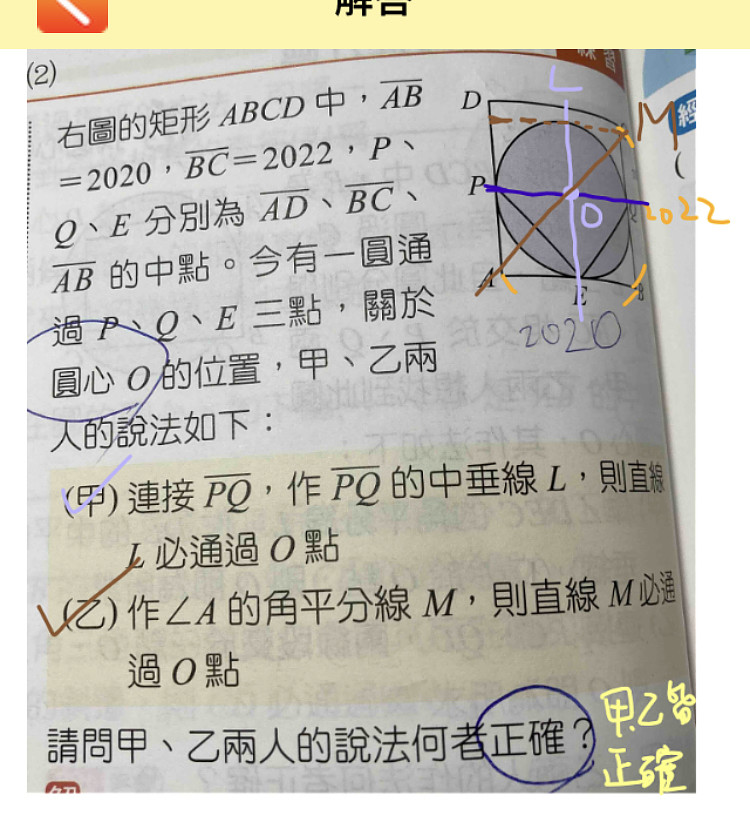 解答
(2)
右圖的矩形 ABCD 中,AB
=2020,BC=2022,P、
Q、E 分別為 AD、BC、
AB 的中點。今有一圓通
過 P、Q、E 三點,關於
圓心 O 的位置,甲、乙兩
人的說法如下:
(甲) 連接 PQ,作 PQ 的中垂線 L,則直線
L 必通過 O 點
(乙) 作∠A 的角平分線 M,則直線 M 必通
過 O 點
請問甲、乙兩人的說法何者正確?
甲乙皆
正確
L
D
M
P
O
2022
A
E
B
2020